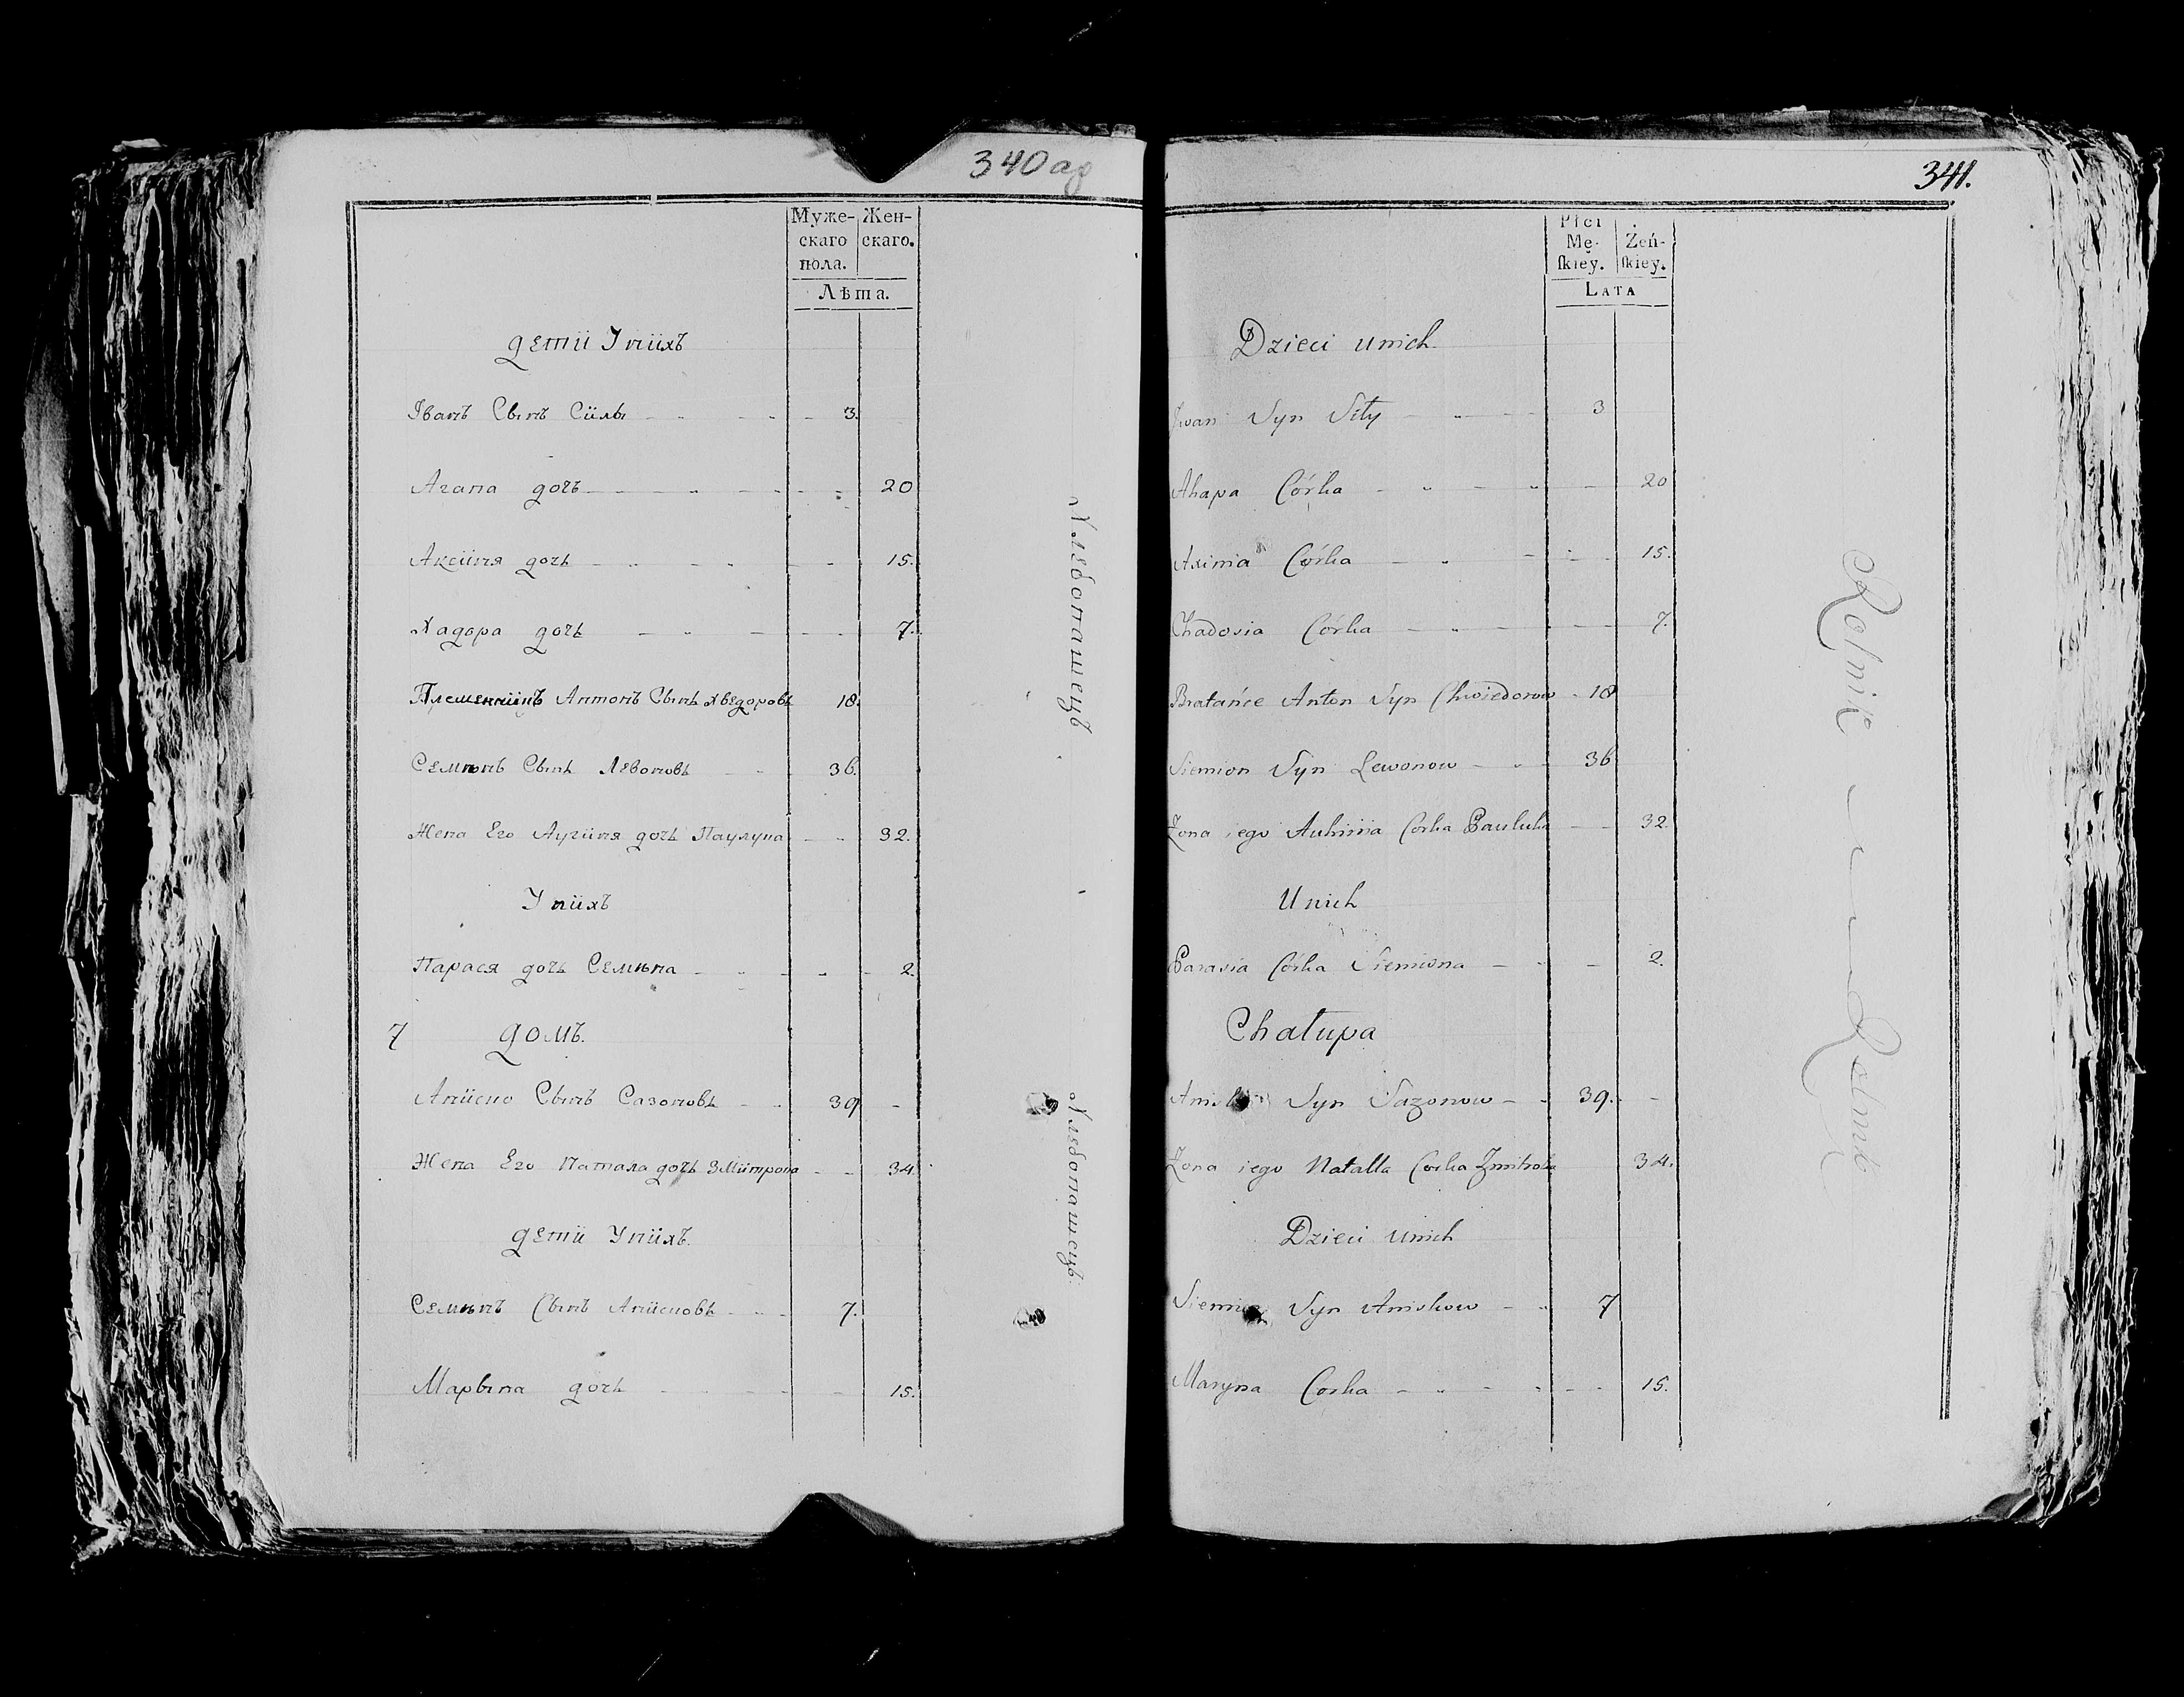 340 ад
Муже- Жен-
скаго скаго.
пола.
Лѣта.
дети Унихъ
Іванъ Сынъ Силы 3.
Агапа дочъ 20
Аксиня дочь 15.
Хадора дочь 7.
Племенникъ Антонъ Сынъ Хведоровъ 18.
Семионъ Сынъ Левоновъ 36.
Жена Его Аугиня дочь Паулука 32.
Унихъ
Парася дочь Семиона 2.
7 домъ.
Аниско Сынъ Сазоновъ 39 -
Жена Его Натала дочь Змитрока 34.
дети Унихъ.
Семионъ Сынъ Анисковъ 7.
Марына дочь 15.
Хлебопашецъ
Хлебопашецъ
341.
Płci
Mę- Żeń-
ſkiey. ſkiey.
Lata
Dzieci unich
Iwan Syn Siły 3
Ahapa Córka 20
Axinia Córka 15.
Chadosia Córka 7.
Bratańce Anton Syn Chwiedorow 18
Siemion Syn Lewonow 36
Żona iego Auhinia Corka Pauluka 32.
Unich
Parasia Córka Siemiona 2.
Chałupa
Syn Sazonow 39. -
Żona iego Natalla Corka Zmitroka 34.
Dzieci unich
Siemion Syn Aniskow 7
Maryna Corka 15.
Rolnik
Rolnik